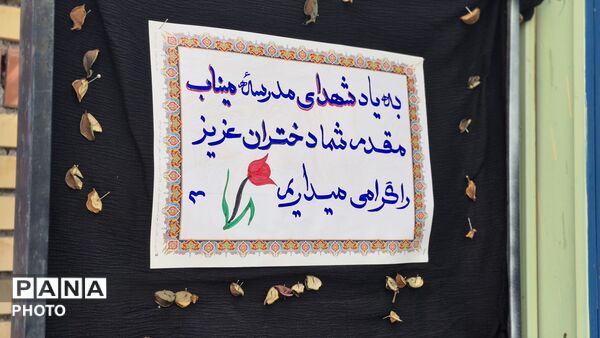 به یاد شهدای مدرسهٔ میناب
مقدم شما دختران عزیز
را گرامی میداریم
PANA
PHOTO